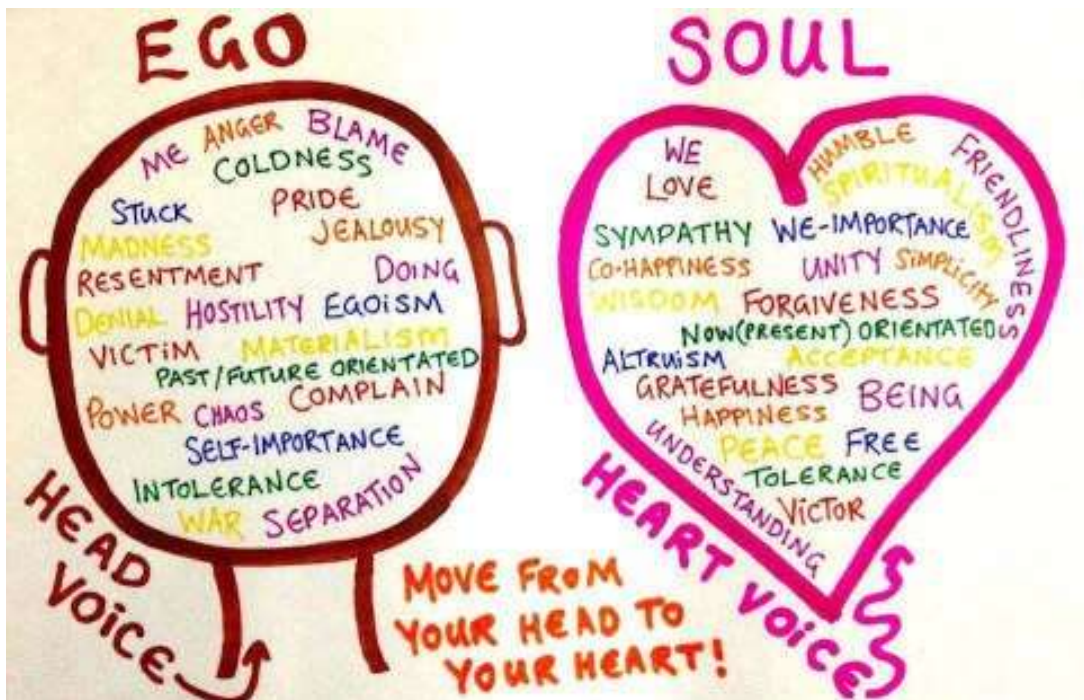 EGO
ME ANGER BLAME
COLDNESS
STUCK PRIDE
MADNESS JEALOUSY
RESENTMENT DOING
DENIAL HOSTILITY EGOISM
VICTIM MATERIALISM
PAST/FUTURE ORIENTATED
POWER CHAOS COMPLAIN
SELF-IMPORTANCE
INTOLERANCE
WAR SEPARATION
HEAD
VOICE
MOVE FROM
YOUR HEAD TO
YOUR HEART!
SOUL
WE HUMBLE FRIENDLINESS
LOVE SPIRITUALISM
SYMPATHY WE-IMPORTANCE
CO-HAPPINESS UNITY SIMPLICITY
WISDOM FORGIVENESS
NOW(PRESENT) ORIENTATED
ALTRUISM ACCEPTANCE
GRATEFULNESS BEING
HAPPINESS
PEACE FREE
UNDERSTANDING TOLERANCE
VICTOR
HEART VOICE